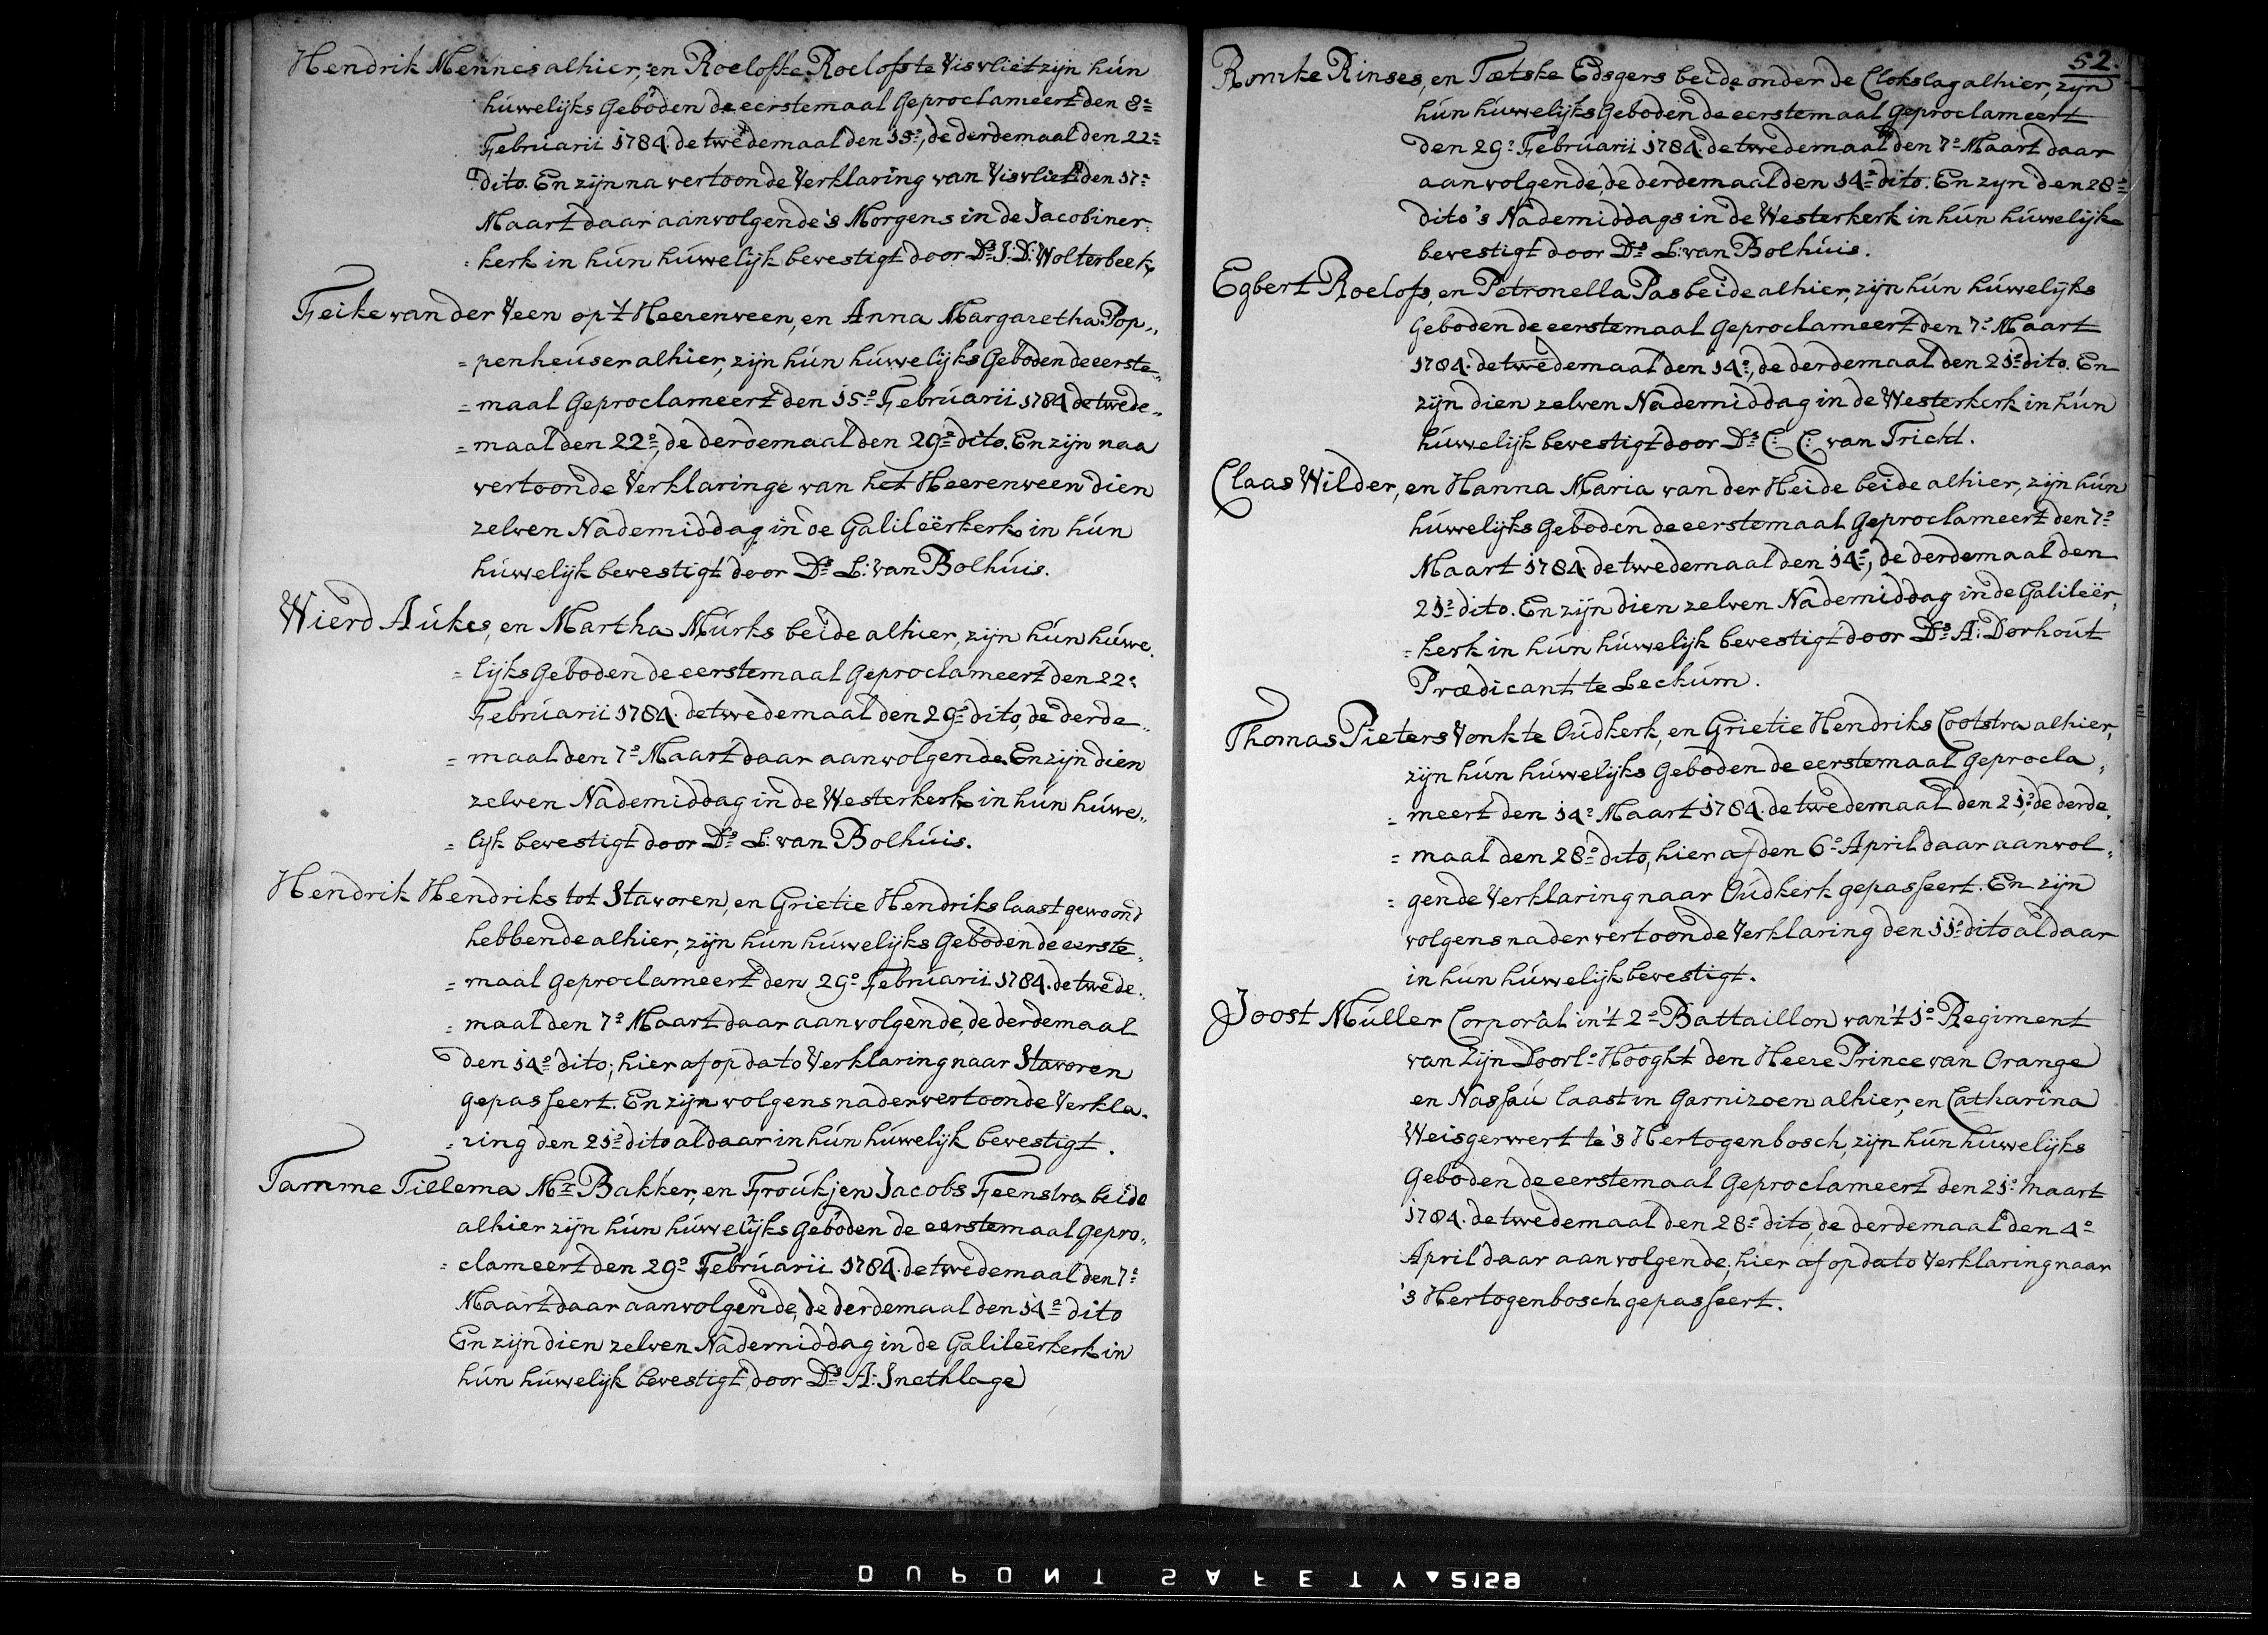 Hendrik Mennes alhier, en Roelofke Roelofs te Visvliet zijn hún
húwelijks Geboden de eerstemaal Geproclameert den 8=
Februarii 1784. de twedemaal den 15=, de derdemaal den 22=
dito. En zijn na vertoonde Verklaring van Visvliet den 17=
Maart daar aanvolgende 's Morgens in de Jacobiner
= kerk in hún húwelijk bevestigt door Ds. J: D: Wolterbeek,
Feike van der Veen op 't Heerenveen, en Anna Margaretha Pop„
= penheúser alhier, zijn hún húwelijks Geboden de eerste„
= maal Geproclameert den 15o Februarii 1784 de twede„
= maal den 22o, de derdemaal den 29o dito. En zijn naa
vertoonde Verklaringe van het Heerenveen dien
zelven Nademiddag in de Galileërkerk in hún
húwelijk bevestigt door Ds L: van Bolhúis.
Wierd Aúkes, en Martha Múrks beide alhier, zijn hún húwe
= lijks Geboden de eerstemaal Geproclameert den 22=
Februarii 1784. de twedemaal den 29o dito, de derde„
= maal den 7o Maart daar aanvolgende. En zijn dien
zelven Nademiddag in de Westerkerk in hún húwe„
= lijk bevestigt door Ds L: van Bolhúis.
Hendrik Hendriks tot Stavoren, en Grietie Hendriks laast gewoond
hebbende alhier, zijn hún húwelijks Geboden de eerste„
= maal Geproclameert den 29o Februarii 1784. de twede„
= maal den 7o Maart daar aanvolgende, de derdemaal
den 14o dito; hier af op dato Verklaring naar Stavoren
gepasseert. En zijn volgens nader vertoonde Verkla.
= ring den 21o dito aldaar in hún húwelijk bevestigt.
Tamme Tillema Mr Bakker, en Froúkjen Jacobs Feenstra beide
alhier zijn hún húwelijks Geboden de eerstemaal Gepro„
= clameert den 29o Februarii 1784. de twedemaal den 7=
Maart daar aanvolgende, de derdemaal den 14o dito
En zijn dien zelven Nademiddag in de Galileërkerk in
hún húwelijk bevestigt, door Ds A: Snethlage
52.
Romke Rinses, en Tætske Edsgers beide onder de Clokslag alhier, zijn
hún húwelijks Geboden de eerstemaal Geproclameert
den 29o Februarii 1784. de twedemaal den 7o Maart daar
aanvolgende, de derdemaal den 14o dito. En zyn den 28=
dito 's Nademiddags in de Westerkerk in hún húwelijke
bevestigt door Ds L: van Bolhúis.
Egbert Roelofs, en Petronella Pas beide alhier, zijn hún húwelijks
Geboden de eerstemaal Geproclameert den 7o Maart
1784. de twedemaal den 14o, de derdemaal den 21o dito. En
zijn dien zelven Nademiddag in de Westerkerk in hún
húwelijk bevestigt door Ds C: C: van Tricht.
Claas Wilder, en Hanna Maria van der Heide beide alhier, zijn hún
húwelijks Geboden de eerstemaal Geproclameert den 7o
Maart 1784 de twedemaal den 14o, de derdemaal den
21o dito. En zijn dien zelven Nademiddag in de Galileër„
= kerk in hún húwelijk bevestigt door Ds A: Dorhoút
Prædicant te Leckúm.
Thomas Pieters Vonk te Oúdkerk, en Grietie Hendriks Cootstra alhier,
zijn hún húwelijks Geboden de eerstemaal Geprocla„
= meert den 14o Maart 1784. de twedemaal den 21o, de derde„
= maal den 28o dito, hier af den 6o April daar aanvol„
= gende Verklaring naar Oúdkerk gepasseert. En zijn
volgens nader vertoonde Verklaring den 11o dito aldaar
in hún húwelijk bevestigt.
Joost Múller Corporal in 't 2o Battaillon van 't 1o Regiment
van Zijn Doorl= Hooght den Heere Prince van Orange
en Nassaú laast in Garnizoen alhier, en Catharina
Weisgerwert te 's Hertogenbosch, zijn hún húwelijks
Geboden de eerstemaal Geproclameert den 21o maart
1784. de twedemaal den 28o dito, de derdemaal den 4o
April daar aanvolgende; hier af op dato Verklaring naar
's Hertogenbosch gepasseert.
DUPONT SAFETY ▾ 5129